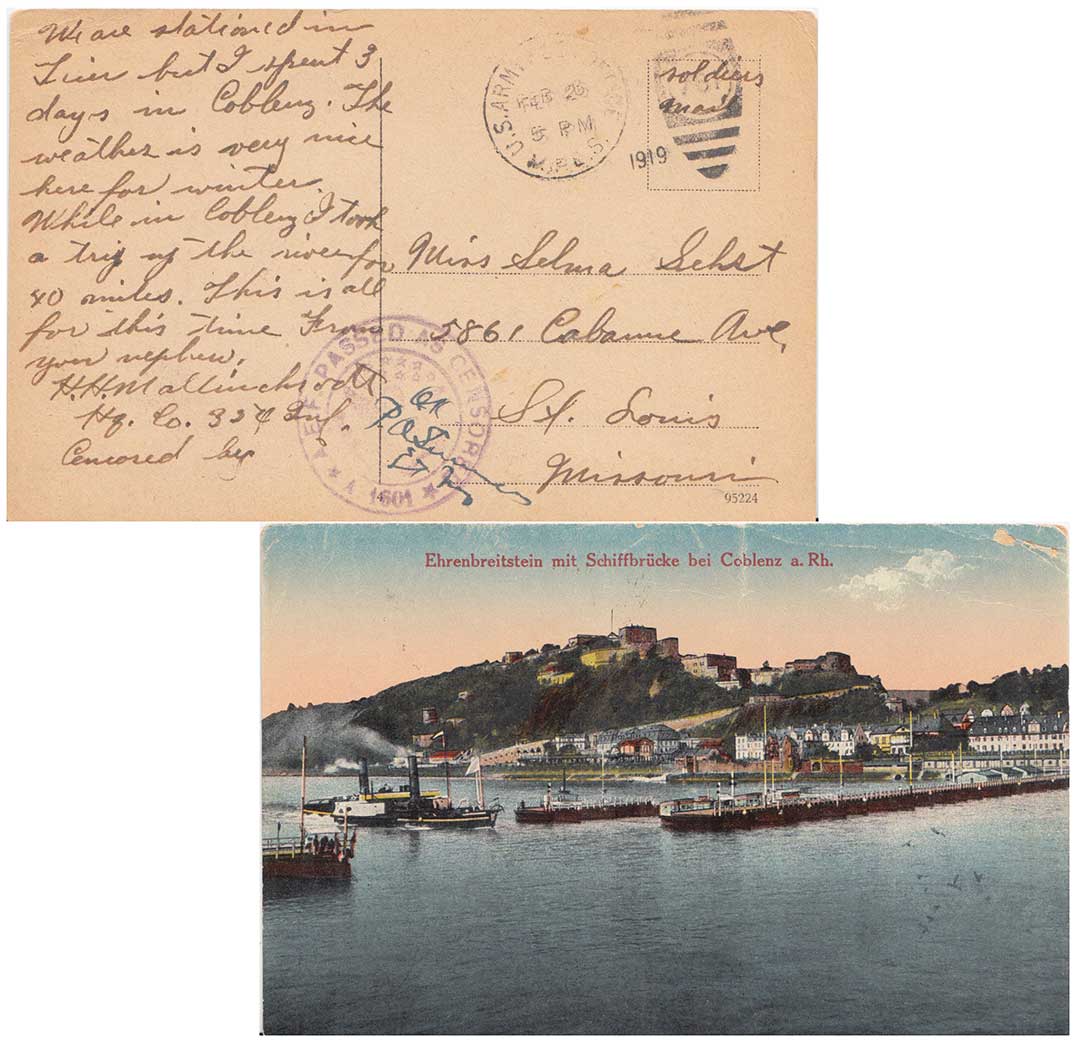 We are stationed in
Trier but I spent 3
days in Coblenz. The
weather is very nice
here for winter.
While in Coblenz I took
a trip up the river for
40 miles. This is all
for this time From
your nephew.
H.H. Mallinckrodt
Hq. Co. 324 Inf.
Censored by
U.S. ARMY
FEB 26
5 PM
M.P.E.S.
1919
soldiers
mail
Miss Selma Sehst
5861 Cabanne Ave,
St. Louis
Missouri
A.E.F. PASSED AS CENSORED
A 1601
OK
95224
Ehrenbreitstein mit Schiffbrücke bei Coblenz a. Rh.